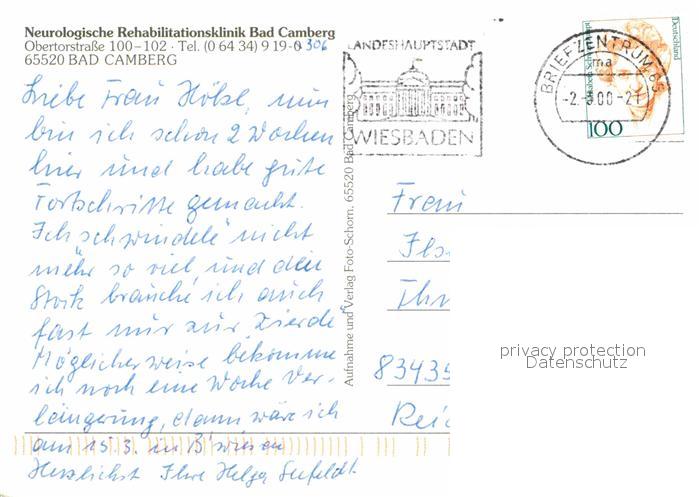 Neurologische Rehabilitationsklinik Bad Camberg
Obertorstraße 100–102 · Tel. (0 64 34) 9 19-0 306
65520 BAD CAMBERG
Liebe Frau Hölzl, nun
bin ich schon 2 Wochen
hier und habe gute
Fortschritte gemacht.
Ich „schwindele" nicht
mehr so viel, und den
Stock brauche ich auch
fast nur zur „Zierde"
Möglicherweise bekomme
ich noch eine Woche Ver-
längerung, dann wäre ich
am 15.3. in B'wiesen
Herzlichst Ihre Helga Seefeldt
Aufnahme und Verlag Foto-Schorn. 65520 Bad Camberg
LANDESHAUPTSTADT
WIESBADEN
BRIEFZENTRUM 65
ma
-2.-3.00-21
Deutschland
100
Frau
83435
Rei
privacy protection
Datenschutz